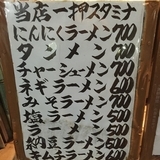 当店一押スタミナ
にんにくラーメン 700
タンメン 700
チャーシューメン 700
ネギラーメン 600
みそラーメン 600
塩ラーメン 500
ラーメン 500
納豆ラーメン 600
キムチラーメン